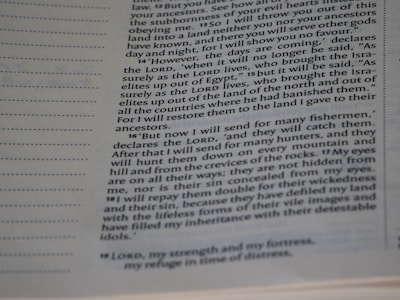 law. ¹²But you have
your ancestors. See how all of
the stubbornness of your evil hearts instead
obeying me. ¹³So I will throw you out of this
land into a land neither you nor your ancestors
have known, and there you will serve other gods
day and night, for I will show you no favour.’
¹⁴‘However, the days are coming,’ declares
the LORD, ‘when it will no longer be said, “As
surely as the LORD lives, who brought the Isra-
elites up out of Egypt,” ¹⁵but it will be said, “As
surely as the LORD lives, who brought the Isra-
elites up out of the land of the north and out of
all the countries where he had banished them.”
For I will restore them to the land I gave to their
ancestors.
¹⁶‘But now I will send for many fishermen,’
declares the LORD, ‘and they will catch them.
After that I will send for many hunters, and they
will hunt them down on every mountain and
hill and from the crevices of the rocks. ¹⁷My eyes
are on all their ways; they are not hidden from
me, nor is their sin concealed from my eyes.
¹⁸I will repay them double for their wickedness
and their sin, because they have defiled my land
with the lifeless forms of their vile images and
have filled my inheritance with their detestable
idols.’
¹⁹LORD, my strength and my fortress,
my refuge in time of distress,